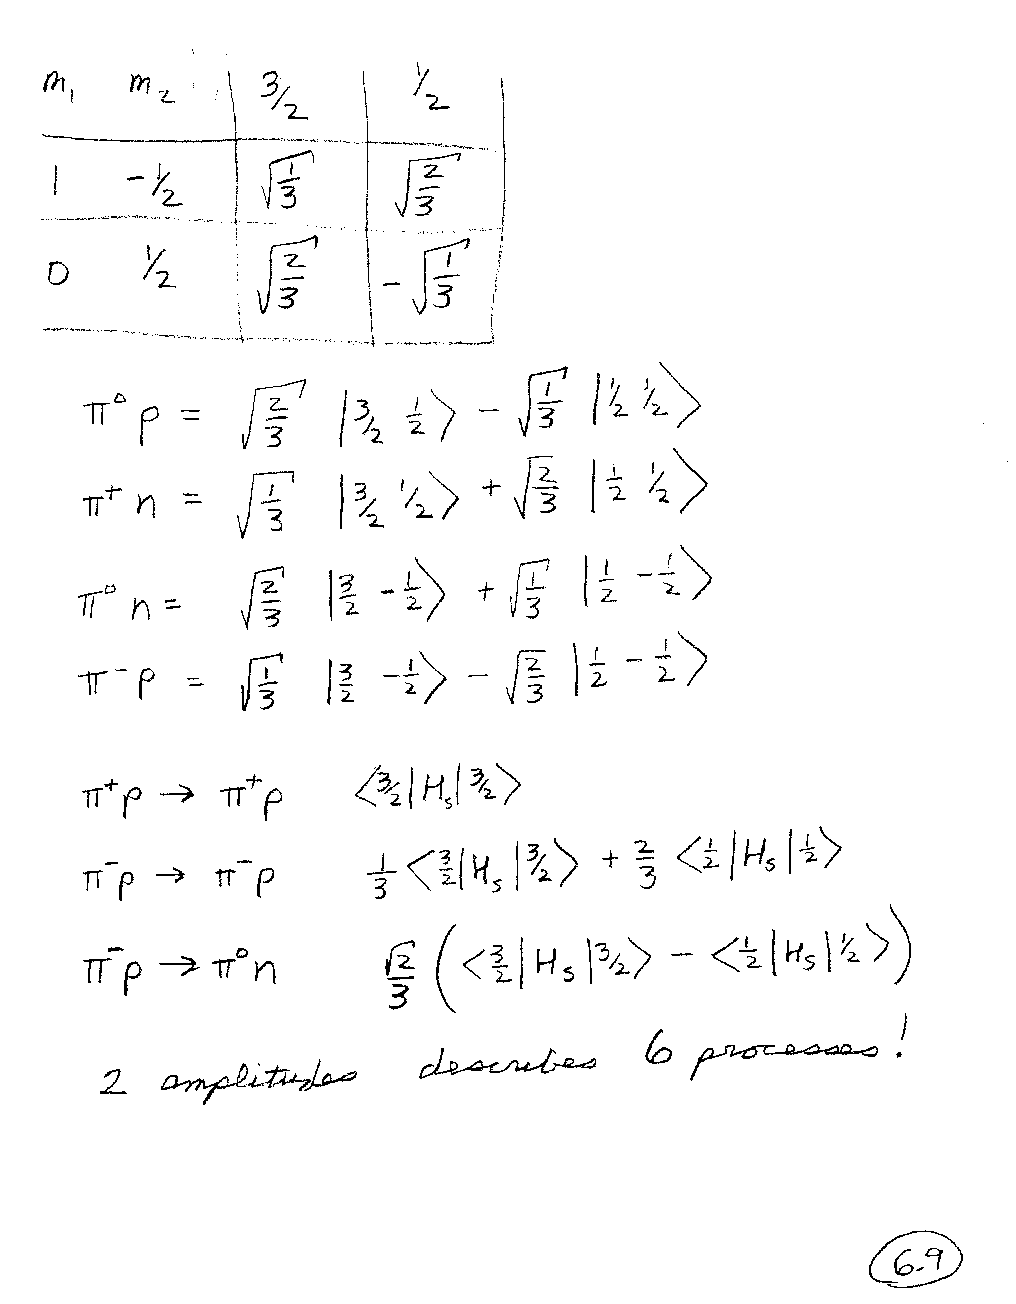 m₁ m₂ 3/2 1/2
1 -1/2 √(1/3) √(2/3)
0 1/2 √(2/3) -√(1/3)
π⁰p = √(2/3) |3/2 1/2⟩ - √(1/3) |1/2 1/2⟩
π⁺n = √(1/3) |3/2 1/2⟩ + √(2/3) |1/2 1/2⟩
π⁰n = √(2/3) |3/2 -1/2⟩ + √(1/3) |1/2 -1/2⟩
π⁻p = √(1/3) |3/2 -1/2⟩ - √(2/3) |1/2 -1/2⟩
π⁺p → π⁺p ⟨3/2|Hₛ|3/2⟩
π⁻p → π⁻p 1/3 ⟨3/2|Hₛ|3/2⟩ + 2/3 ⟨1/2|Hₛ|1/2⟩
π⁻p → π⁰n √2/3 (⟨3/2|Hₛ|3/2⟩ - ⟨1/2|Hₛ|1/2⟩)
2 amplitudes describes 6 processes!
6.9